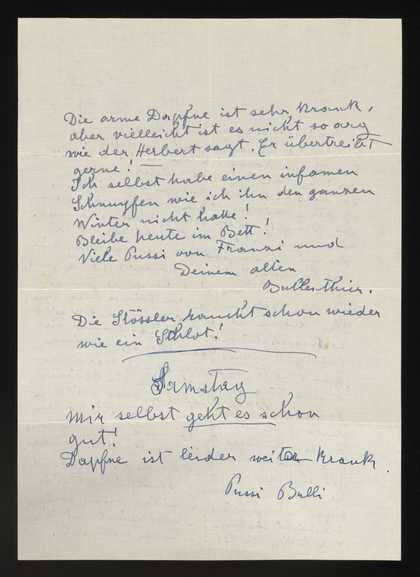 Die arme Dapfne ist sehr krank,
aber vielleicht ist es nicht so arg
wie der Herbert sagt. Er übertreibt
gerne!
Ich selbst habe einen infamen
Schnupfen wie ich ihn den ganzen
Winter nicht hatte!
Bleibe heute im Bett!
Viele Pussi von Franzi und
Deinem alten
Bullerthier.
Die Stössler raucht schon wieder
wie ein Schlot!
Samstag
Mir selbst geht es schon
gut!
Dapfne ist leider weiter krank.
Pussi Bulli